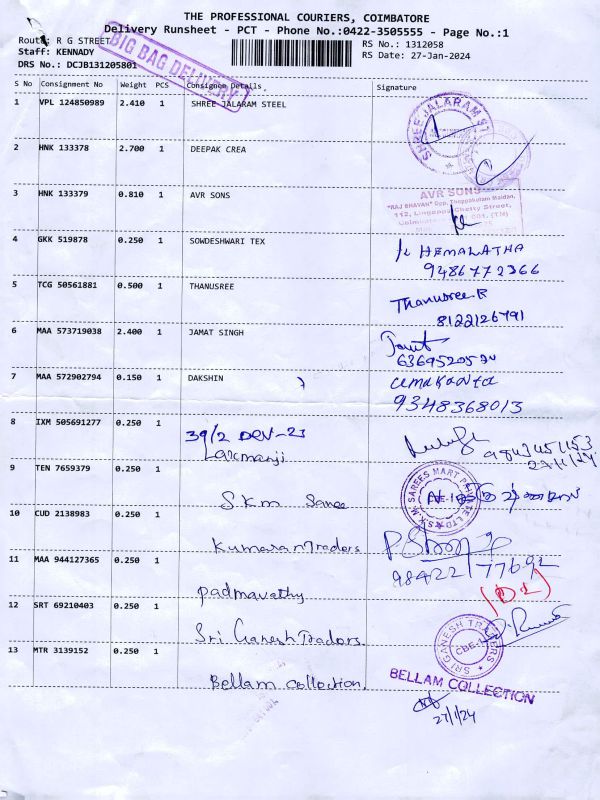 THE PROFESSIONAL COURIERS, COIMBATORE
Delivery Runsheet - PCT - Phone No.:0422-3505555 - Page No.:1
Route: R G STREET
RS No.: 1312058
Staff: KENNADY
RS Date: 27-Jan-2024
DRS No.: DCJB131205801
BIG BAG DELIVERY
S No Consignment No Weight PCS Consignee Details Signature
1 VPL 124850989 2.410 1 SHREE JALARAM STEEL
SHREE JALARAM ST
2 HNK 133378 2.700 1 DEEPAK CREA
3 HNK 133379 0.810 1 AVR SONS
AVR SONS
"RAJ BHAVAN" Opp. Thoppakulam Maidan,
112, Lingappa Chetty Street,
4 GKK 519878 0.250 1 SOWDESHWARI TEX
HEMALATHA
9486772366
5 TCG 50561881 0.500 1 THANUSREE
Thanusree R
8122126791
6 MAA 573719038 2.400 1 JAMAT SINGH
7 MAA 572902794 0.150 1 DAKSHIN
umakanta
9348368013
8 IXM 505691277 0.250 1 39/2 DEV-23
Laxmanji
9843451153
27/1/24
9 TEN 7659379 0.250 1 S.K.M Saree
S.K.M. SAREES MART PRIVATE LTD
10 CUD 2138983 0.250 1 Kumaran Traders
98422177692
11 MAA 944127365 0.250 1 Padmavathy
(D2)
12 SRT 69210403 0.250 1 Sri Ganesh Traders.
SRI GANESH TRADERS
CBE-1
13 MTR 3139152 0.250 1 Bellam Collection.
BELLAM COLLECTION
27/1/24